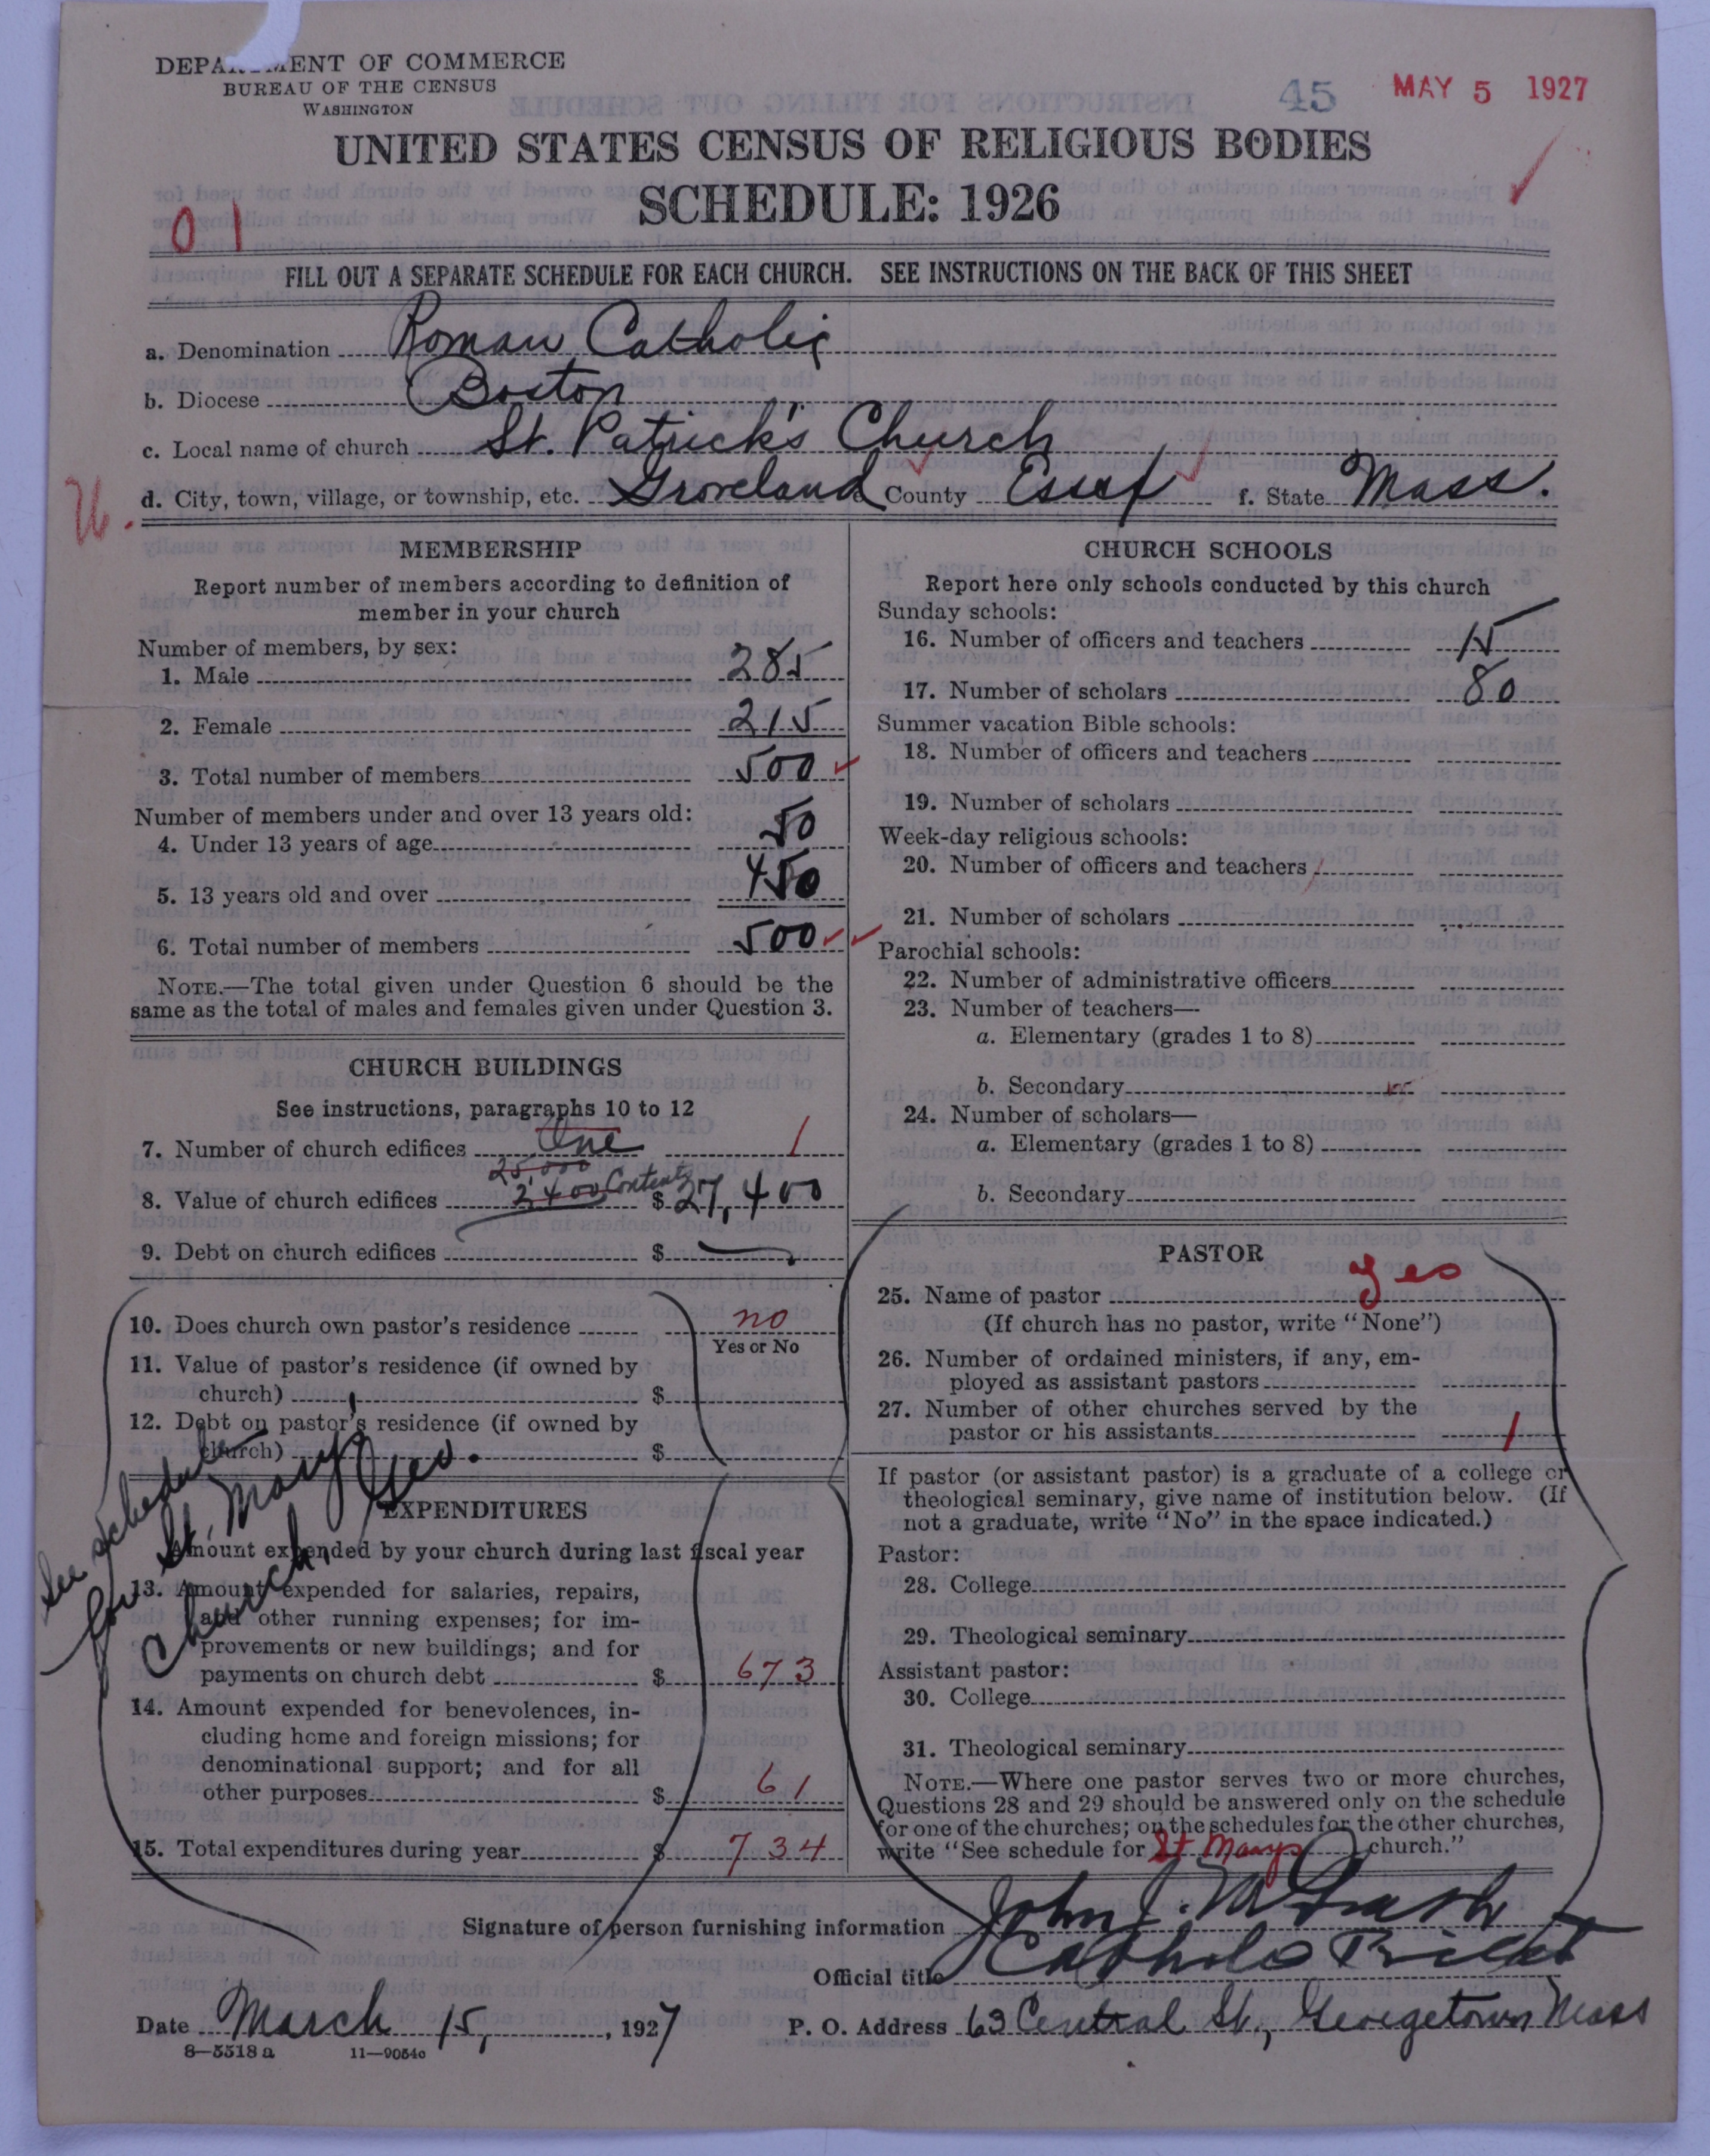 DEPARTMENT OF COMMERCE
BUREAU OF THE CENSUS
WASHINGTON
45 MAY 5 1927
UNITED STATES CENSUS OF RELIGIOUS BODIES
SCHEDULE: 1926
01
FILL OUT A SEPARATE SCHEDULE FOR EACH CHURCH. SEE INSTRUCTIONS ON THE BACK OF THIS SHEET
a. Denomination Roman Catholic
b. Diocese Boston
c. Local name of church St. Patrick's Church
d. City, town, village, or township, etc. Groveland e. County Essex f. State Mass.
MEMBERSHIP
Report number of members according to definition of
member in your church
Number of members, by sex:
1. Male 285
2. Female 215
3. Total number of members 500
Number of members under and over 13 years old:
4. Under 13 years of age 50
5. 13 years old and over 450
6. Total number of members 500
NOTE.—The total given under Question 6 should be the
same as the total of males and females given under Question 3.
CHURCH BUILDINGS
See instructions, paragraphs 10 to 12
7. Number of church edifices One 1
25,000
8. Value of church edifices 2400 Contents $ 27,400
9. Debt on church edifices $ —
10. Does church own pastor's residence no
Yes or No
11. Value of pastor's residence (if owned by
church) $
12. Debt on pastor's residence (if owned by
church) $
See schedule
for St. Mary's
Church, Geo.
EXPENDITURES
Amount expended by your church during last fiscal year
13. Amount expended for salaries, repairs,
and other running expenses; for im-
provements or new buildings; and for
payments on church debt $ 673
14. Amount expended for benevolences, in-
cluding home and foreign missions; for
denominational support; and for all
other purposes $ 61
15. Total expenditures during year $ 734
CHURCH SCHOOLS
Report here only schools conducted by this church
Sunday schools:
16. Number of officers and teachers 15
17. Number of scholars 80
Summer vacation Bible schools:
18. Number of officers and teachers
19. Number of scholars
Week-day religious schools:
20. Number of officers and teachers
21. Number of scholars
Parochial schools:
22. Number of administrative officers
23. Number of teachers—
a. Elementary (grades 1 to 8)
b. Secondary
24. Number of scholars—
a. Elementary (grades 1 to 8)
b. Secondary
PASTOR
25. Name of pastor Yes
(If church has no pastor, write "None")
26. Number of ordained ministers, if any, em-
ployed as assistant pastors
27. Number of other churches served by the
pastor or his assistants 1
If pastor (or assistant pastor) is a graduate of a college or
theological seminary, give name of institution below. (If
not a graduate, write "No" in the space indicated.)
Pastor:
28. College
29. Theological seminary
Assistant pastor:
30. College
31. Theological seminary
NOTE.—Where one pastor serves two or more churches,
Questions 28 and 29 should be answered only on the schedule
for one of the churches; on the schedules for the other churches,
write "See schedule for St Marys church."
Signature of person furnishing information John J. McGrath
Official title Catholic Priest
Date March 15, 1927 P. O. Address 63 Central St., Georgetown Mass
8—5518 a 11—9054c